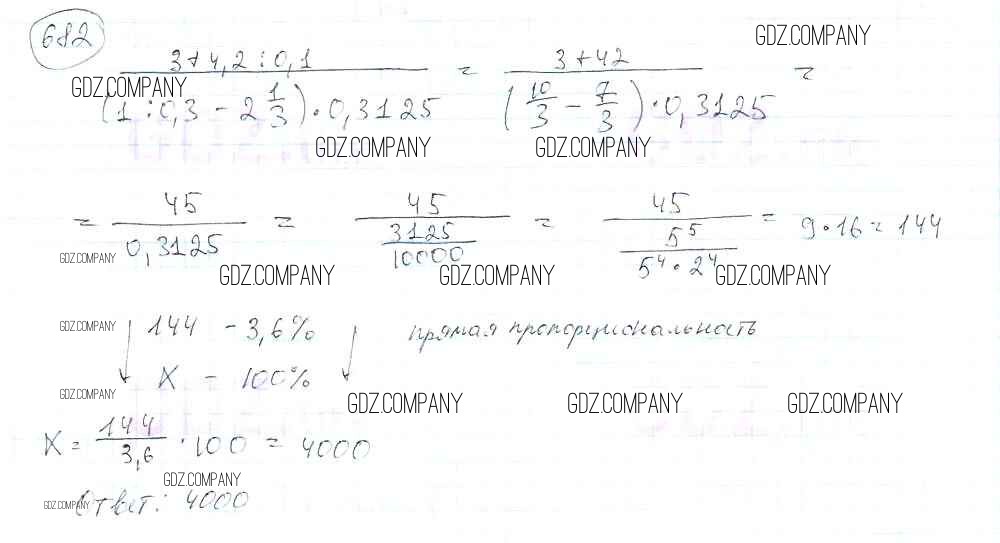 682
GDZ.COMPANY
3 + 4,2 : 0,1 = 3 + 42 =
GDZ.COMPANY
(1 : 0,3 - 2 1/3) · 0,3125 (10/3 - 7/3) · 0,3125
GDZ.COMPANY GDZ.COMPANY
= 45 / 0,3125 = 45 / (3125/10000) = 45 / (5^5 / 5^4 · 2^4) = 9 · 16 = 144
GDZ.COMPANY GDZ.COMPANY GDZ.COMPANY GDZ.COMPANY
GDZ.COMPANY 144 - 3,6% прямая пропорциональность
x - 100%
GDZ.COMPANY GDZ.COMPANY GDZ.COMPANY GDZ.COMPANY
x = 144/3,6 · 100 = 4000
GDZ.COMPANY
GDZ.COMPANY Ответ: 4000